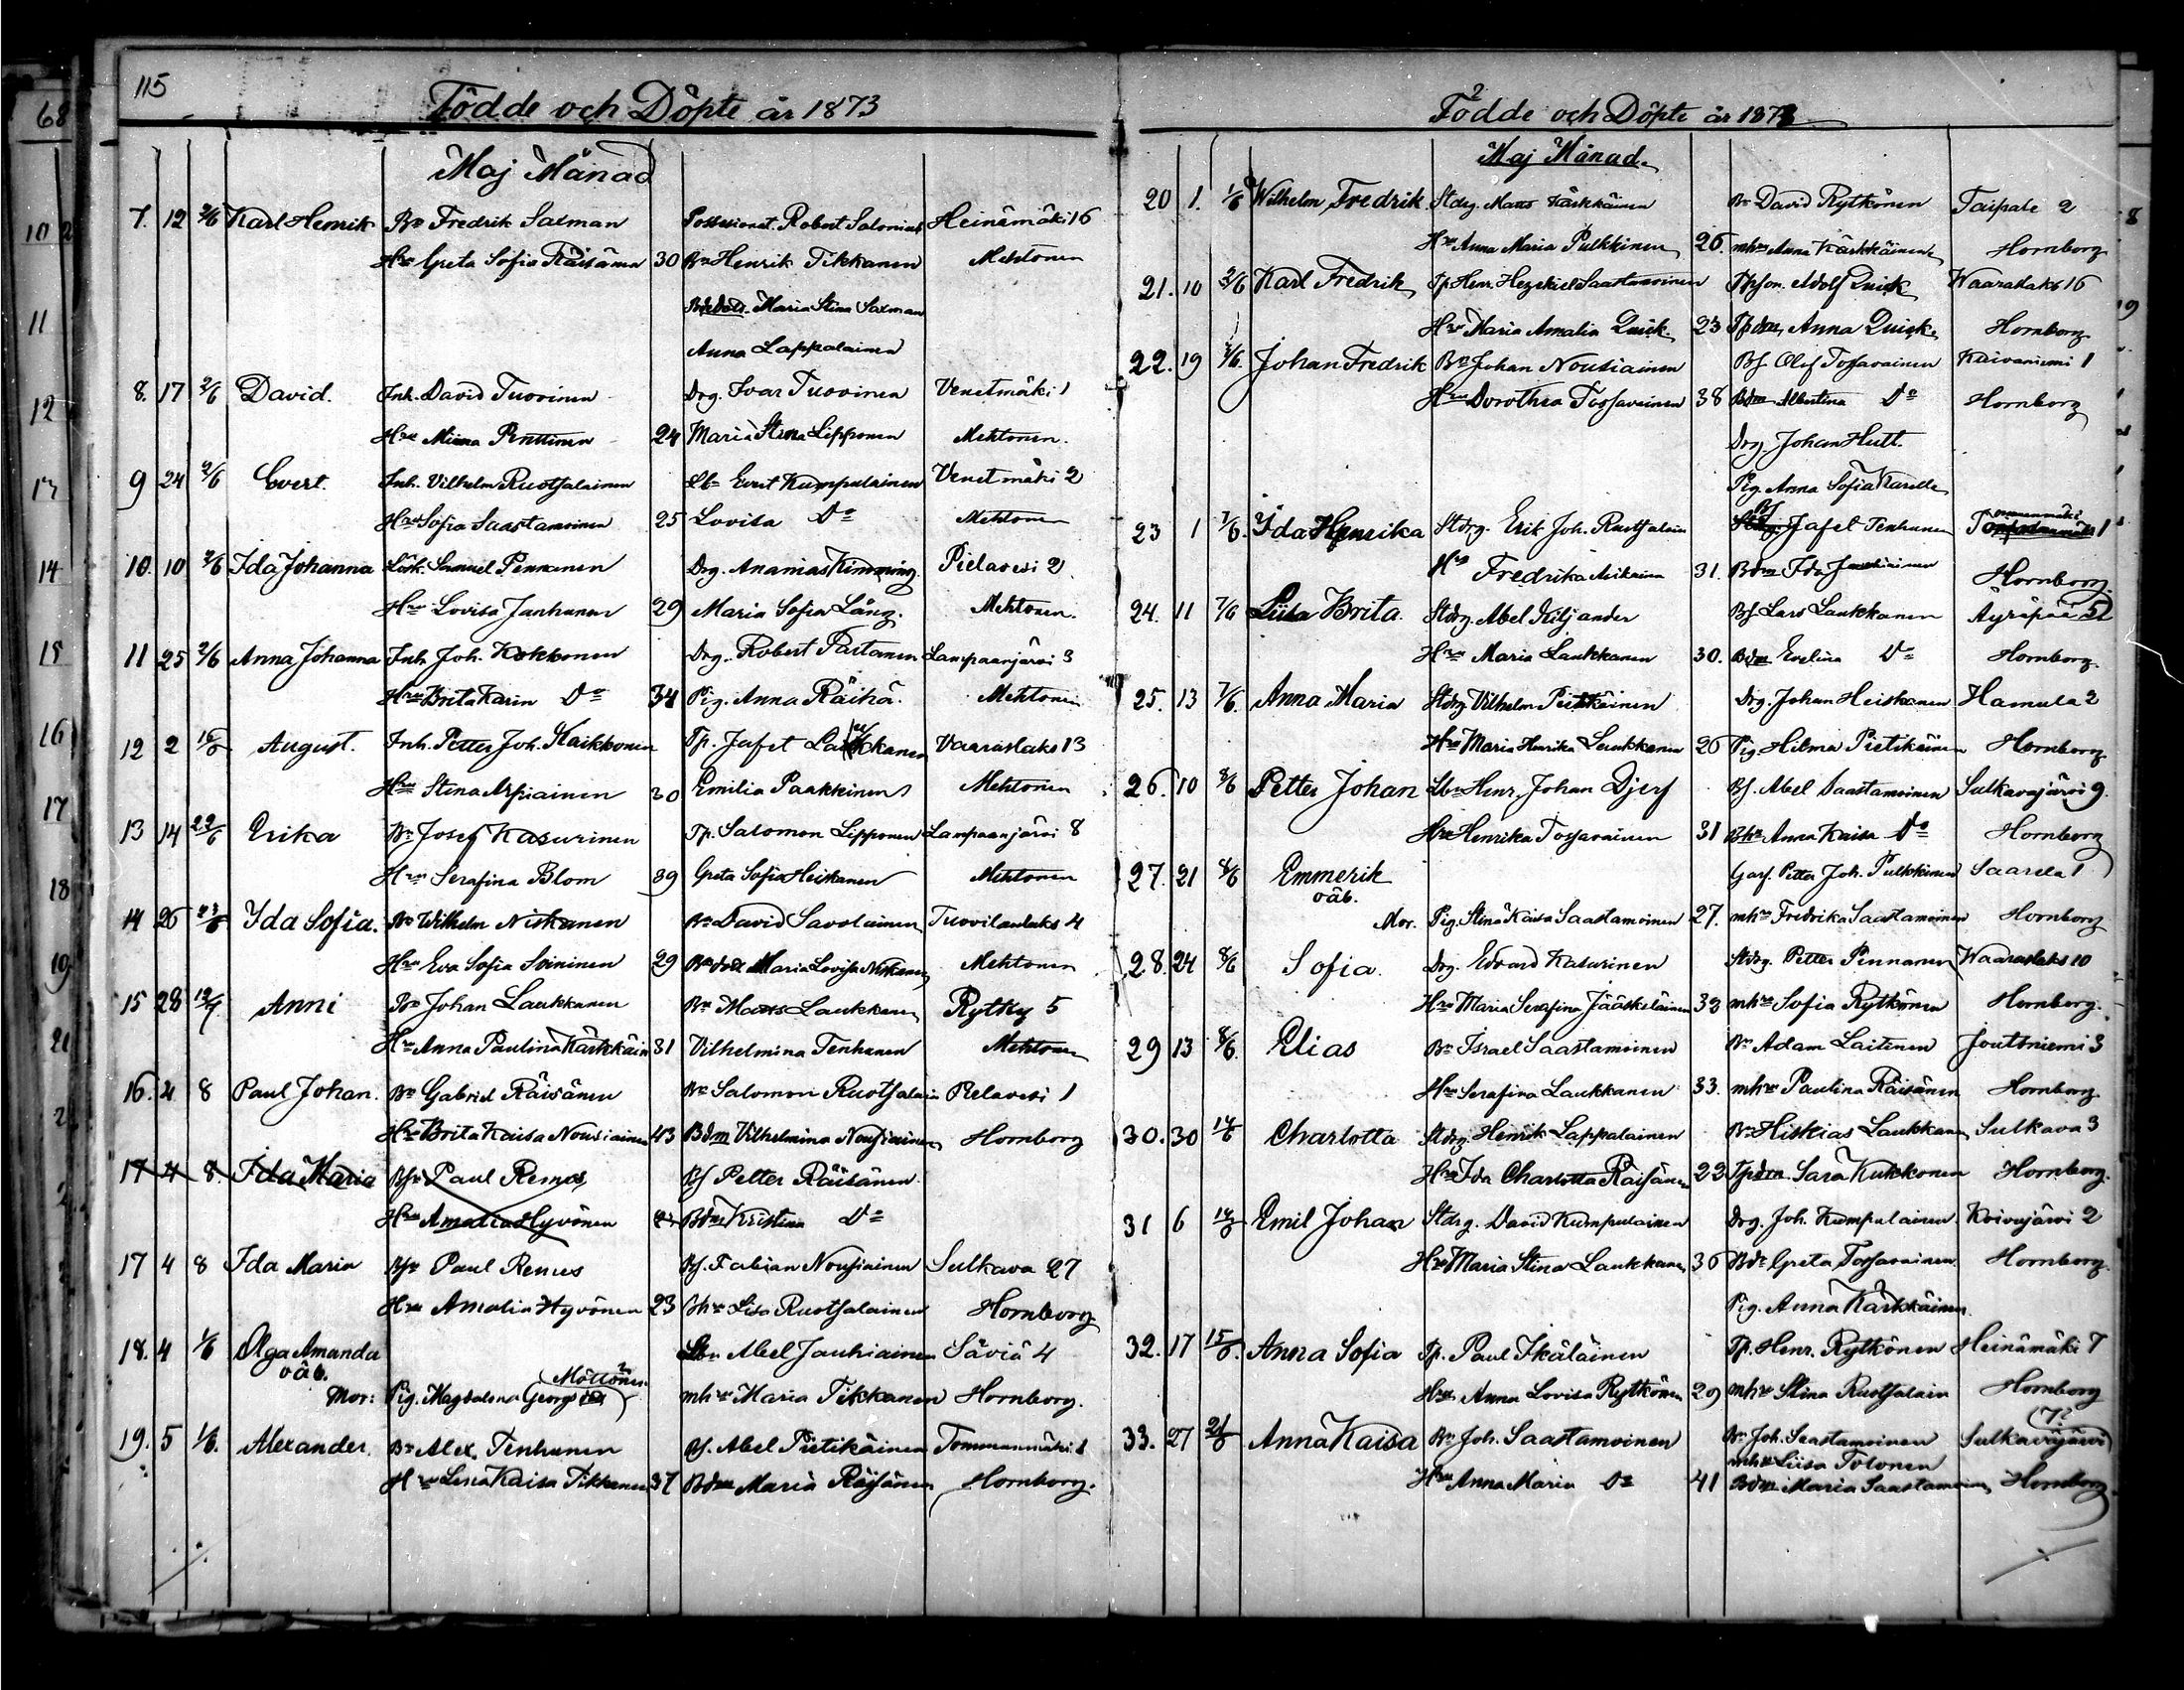 115
Födde och Döpte år 1873
Maj Månad
7. 12 2/6 Karl Henrik Bn Fredrik Saxman Possessionat. Robert Salonius Heinämäki 16
Hru Greta Sofia Räisänen 30 Bn Henrik Tikkanen Mehtonen
Maria Stina Saxman
Anna Lappalainen
8. 17 2/6 David. Inh. David Tuovinen Drg. Ivar Tuovinen Venetmäki 1
Hru Miina Penttinen 24 Maria Stina Lipponen Mehtonen.
9 24 2/6 Evert. Inh. Vilhelm Ruotsalainen Lbn Evert Kumpulainen Venetmäki 2
Hru Sofia Saastamoinen 25 Lovisa Do Mehtonen
10. 10 2/6 Ida Johanna Lösk. Samuel Pennanen Drg. Ananias Kimming. Pielavesi 2
Hru Lovisa Janhunen 29 Maria Sofia Läng. Mehtonen.
11 25 2/6 Anna Johanna Inh. Joh. Kokkonen Drg. Robert Partanen Lampaanjärvi 3
Hru Brita Karin Do 34 Pig. Anna Räihä. Mehtonen
12 2 15/6 August. Inh. Petter Joh. Kaikkonen Tp. Jafet Laukkanen Vaaraslaks 13
Hru Stina Arpiainen 30 Emilia Paakkinen Mehtonen
13 14 22/6 Erika Bn Josef Kasurinen Tp. Salomon Lipponen Lampaanjärvi 8
Hru Serafina Blom 39 Greta Sofia Heiskanen Mehtonen
14 26 23/6 Ida Sofia. Bn Wilhelm Niskanen Bn David Savolainen Tuovilanlaks 4
Hru Eva Sofia Soininen 29 Maria Lovisa Niskanen Mehtonen
15 28 Anni Bn Johan Laukkanen Bn Mats Laukkanen Rytky 5
Hru Anna Paulina Kärkkäin 31 Vilhelmina Tenhunen Mehtonen
16. 4 8 Paul Johan. Bn Gabriel Räisänen Bn Salomon Ruotsalain Pielavesi 1
Hru Brita Kaisa Nousiainen 43 Bdm Vilhelmina Nousiainen Hornborg
17 4 8. Ida Maria Bsn Paul Remes Bs Petter Räisänen
Hru Amalia Hyvönen Bdm Kristina Do
17 4 8 Ida Maria Bsn Paul Remes Bs. Fabian Nousiainen Sulkava 27
Hru Amalia Hyvönen 23 Bhu Lisa Ruotsalainen Hornborg
18. 4 1/6 Olga Amanda Lbn Abel Jauhiainen Säviä 4
oäb. Möttönen
Mor: Pig. Magdalena Georgs mhu Maria Tikkanen Hornborg.
19. 5 1/6. Alexander. Bn Alex. Tenhunen Bs. Abel Pietikäinen Tommanmäki 1
Hru Lena Kaisa Tikkanen 37 Bdm Maria Räisänen Hornborg.
Födde och Döpte år 1873
Maj Månad.
20 1. 1/6 Wilhelm Fredrik Stdrg. Mats Kärkkäinen Bn David Rytkönen Taipale 2
Hru Anna Maria Pulkkinen 26. mhu Anna Kärkkäinen Hornborg
21. 10 2/6 Karl Fredrik Tp. Henr. Hezekiel Saastamoinen Tpson. Adolf Quick Waaraslaks 16
Hru Maria Amalia Quick. 23 Tpdm Anna Quick Hornborg
22. 19 Johan Fredrik Bn Johan Nousiainen Bs Olof Tossavainen Kaivaniemi 1
Hru Dorothea Tossavainen 38 Bdm Albertina Do Hornborg
Drg. Johan Hutt.
Pig. Anna Sofia Karelle
23 1 7/6. Ida Henrika Stdrg. Erik Joh. Ruotsalain Bs Jafet Tenhunen Tommanmäki 1
Hru Fredrika Asikainen 31. Bdm Ida Jauhiainen Hornborg.
24. 11 7/6 Liisa Brita. Stdrg. Abel Kiljander Bs Lars Laukkanen Äyräpää 5
Hru Maria Laukkanen 30. Bdm Evelina Do Hornborg.
25. 13 7/6. Anna Maria Stdrg. Vilhelm Pietikäinen Drg. Johan Heiskanen Hamula 2
Hru Maria Henrika Leinkkanen 26 Pig. Hilma Pietikäinen Hornborg
26. 10 8/6 Petter Johan Lbn Henr. Johan Djerf Bs. Abel Saastamoinen Sulkavajärvi 9.
Hru Henrika Tossavainen 31 Bhu Anna Kaisa Do Hornborg
27. 21 8/6 Emmerik Garf. Petter Joh. Pulkkinen Saarela 1
oäb.
Mor. Pig. Stina Kaisa Saastamoinen 27. mhu Fredrika Saastamoinen Hornborg
28. 24 8/6 Sofia. Drg. Edvard Kasurinen Stdrg. Petter Pennanen Waaraslaks 10
Hru Maria Serafina Jääskeläinen 32 mhu Sofia Rytkönen Hornborg.
29 13 8/6. Elias Bn Israel Saastamoinen Bn Adam Laitinen Joutsniemi 3
Hru Serafina Laukkanen 33. mhu Paulina Räisänen Hornborg.
30. 30 14/6 Charlotta Stdrg. Henrik Lappalainen Bn Hiskias Laukkanen Sulkava 3
Hru Ida Charlotta Räisänen 22 Tpdm Sara Kukkonen Hornborg.
31 6 14/6 Emil Johan Stdrg. David Kumpulainen Drg. Joh. Kumpulainen Koivujärvi 2
Hru Maria Stina Laukkanen 36 Bdr Greta Tossavainen Hornborg.
Pig. Anna Kärkkäinen.
32. 17 15/6. Anna Sofia Tp. Paul Ikäläinen Tp. Henr. Rytkönen Heinämäki 7
Hru Anna Lovisa Rytkönen 29 mhu Stina Ruotsalain Hornborg
33. 27 21/6 Anna Kaisa Bn Joh. Saastamoinen Bn Joh. Saastamoinen Sulkavajärvi (7?)
mhu Liisa Tolonen
Hru Anna Maria Do 41 Bdm Maria Saastamoinen Hornborg.